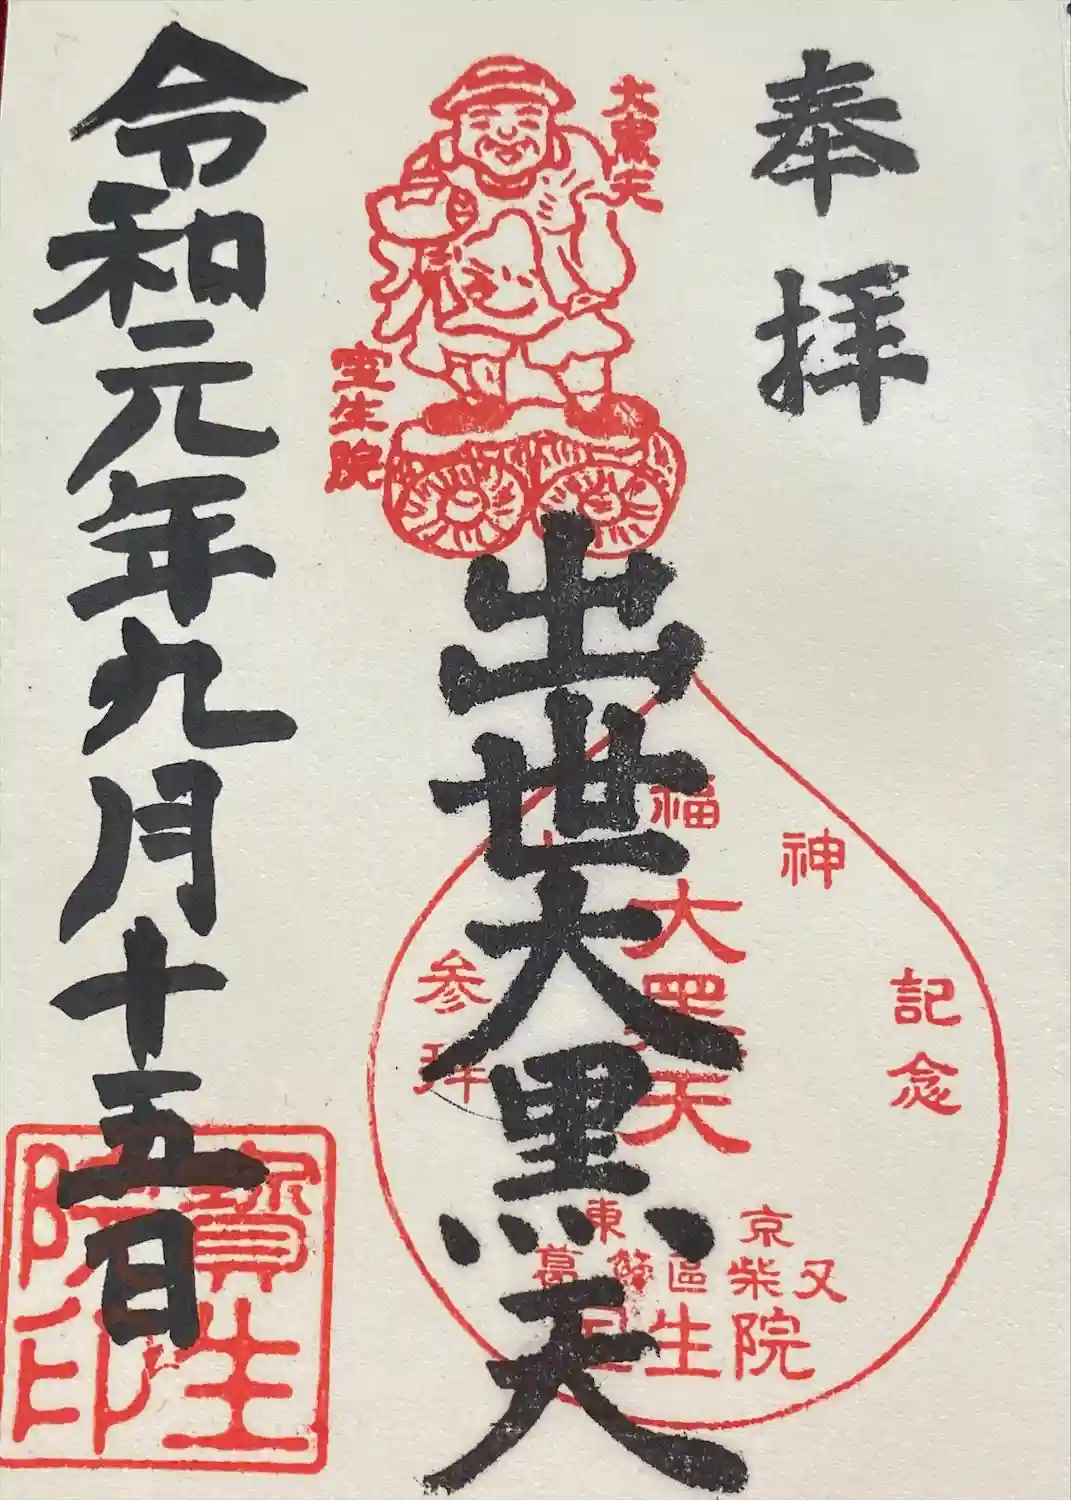 奉拝
大黒天
宝生院
出世大黒天
福神
参拝
記念
大黑天
東京
葛飾區柴又
生院
令和元年九月十五日
寶生院印